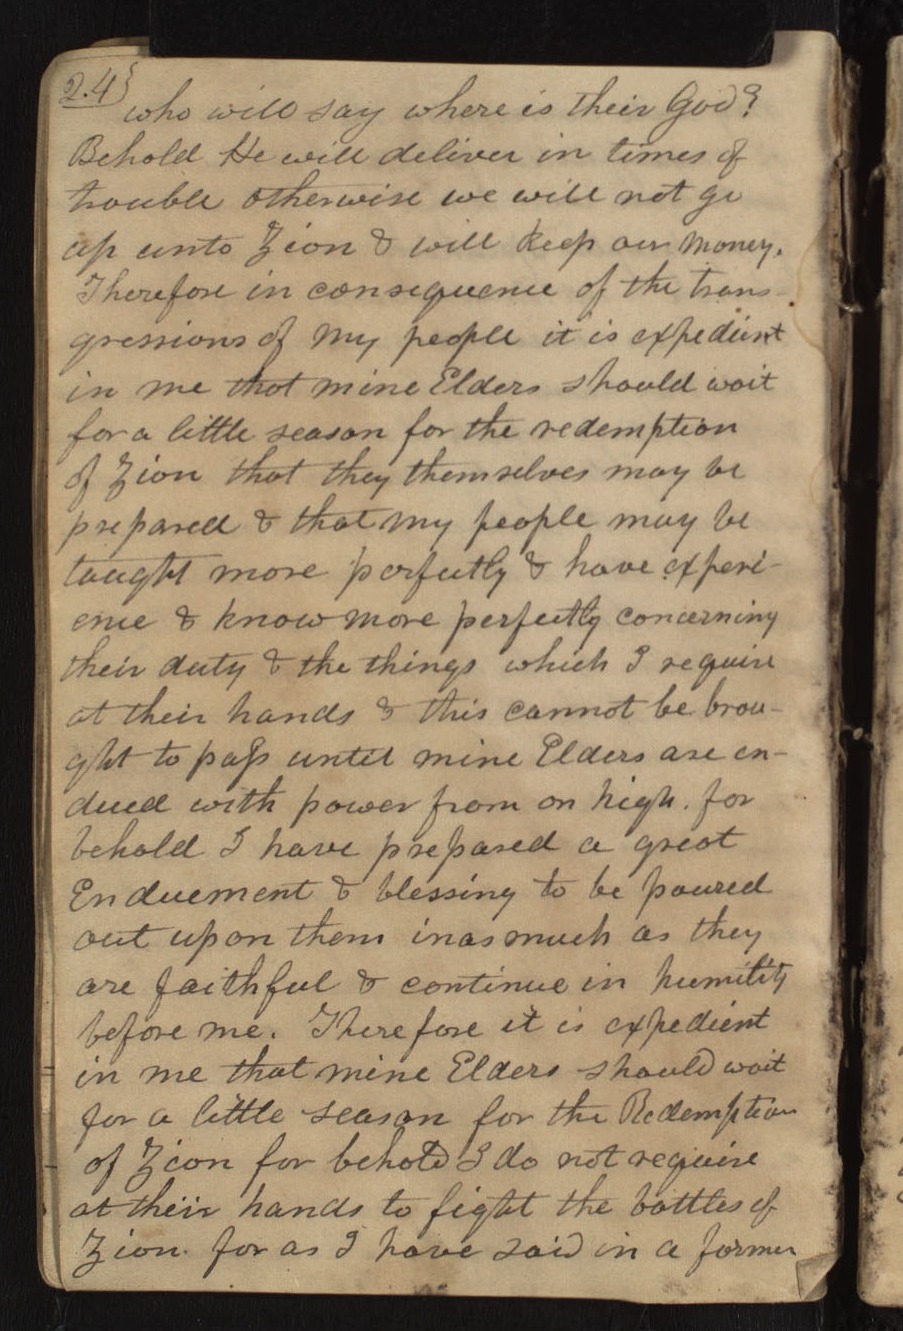 24}
who will say where is their God?
Behold He will deliver in times of
trouble otherwise we will not go
up unto Zion & will keep our money.
Therefore in consequence of the trans-
gressions of my people it is expedient
in me that mine Elders should wait
for a little season for the redemption
of Zion that they themselves may be
prepared & that my people may be
taught more perfectly & have experi-
ence & know more perfectly concerning
their duty & the things which I require
at their hands & this cannot be brou-
ght to pass until mine Elders are en-
dued with power from on high. for
behold I have prepared a great
Enduement & blessing to be poured
out upon them inasmuch as they
are faithful & continue in humility
before me. Therefore it is expedient
in me that mine Elders should wait
for a little season for the Redemption
of Zion for behold I do not require
at their hands to fight the battles of
Zion. for as I have said in a former